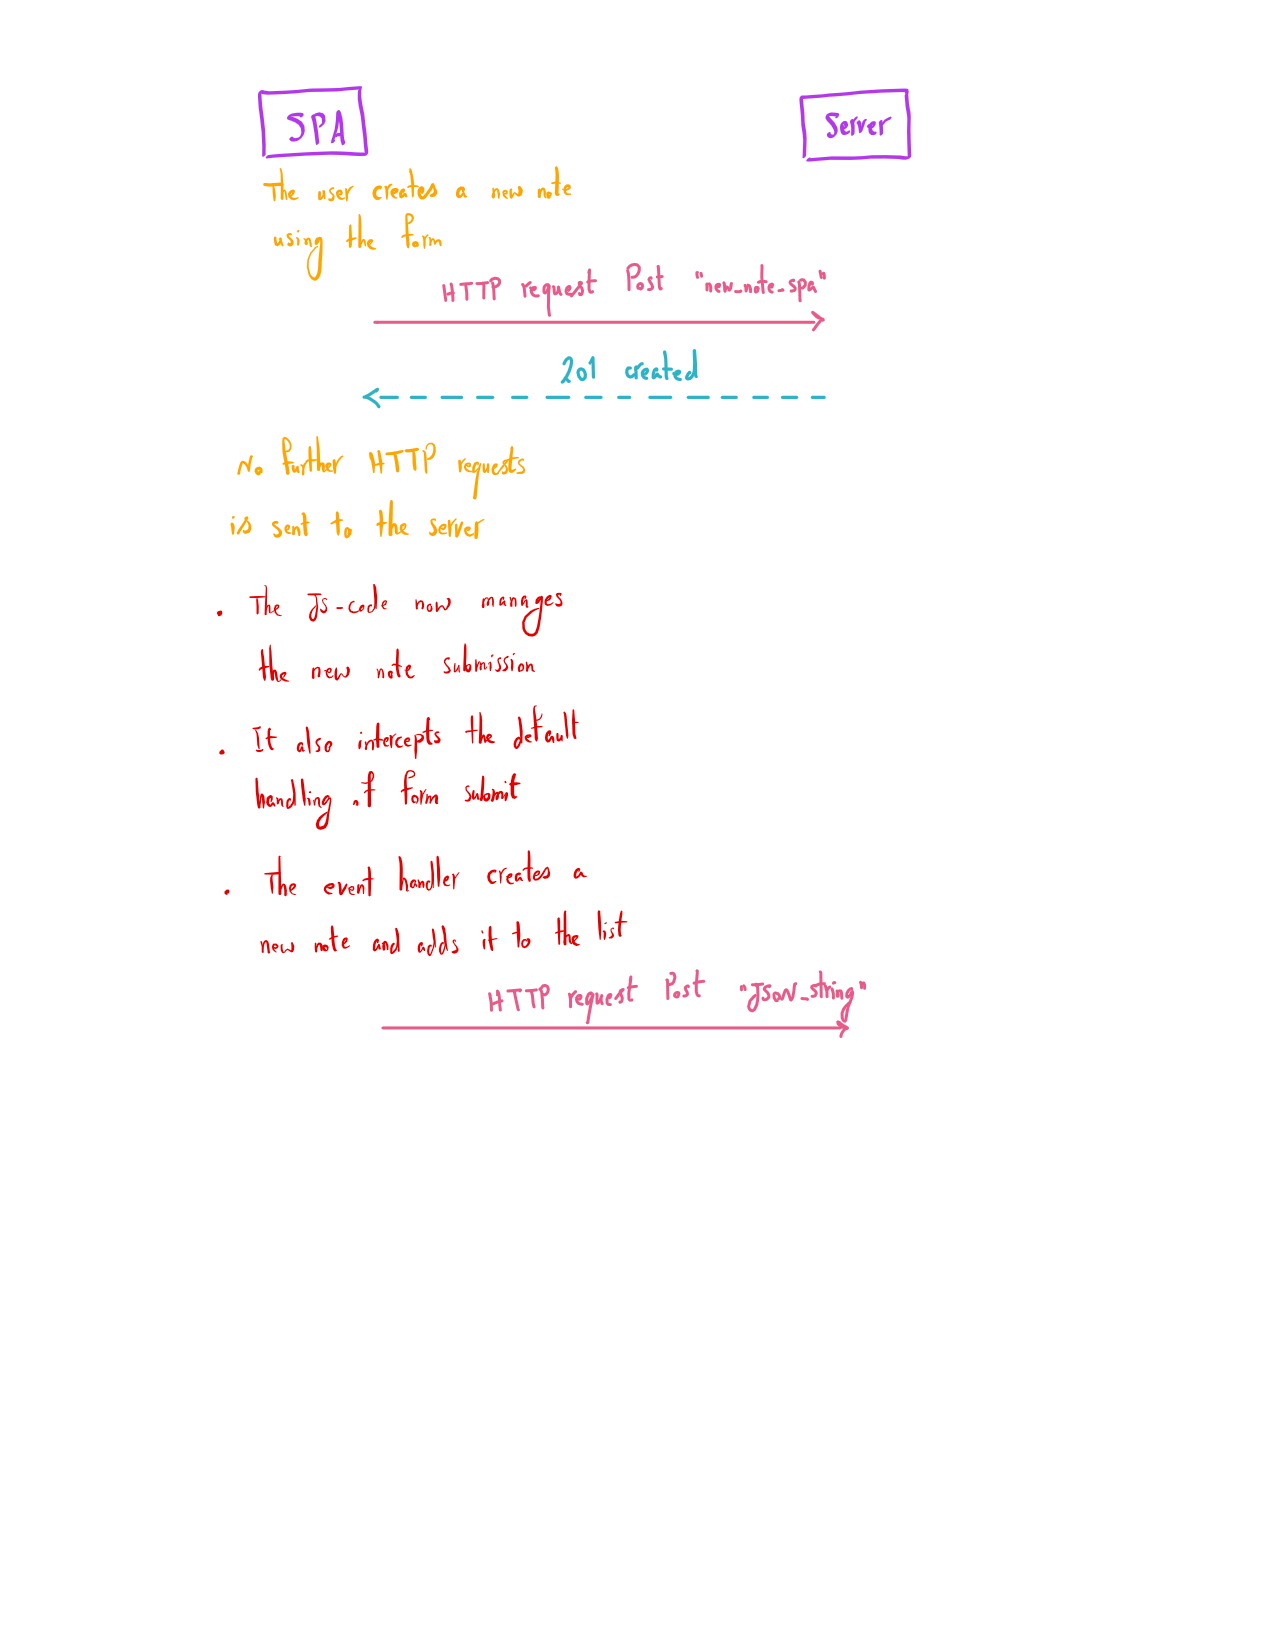 SPA
Server
The user creates a new note
using the form
HTTP request Post "new_note_spa"
201 created
No further HTTP requests
is sent to the server
. The JS-code now manages
the new note submission
. It also intercepts the default
handling of form submit
. The event handler creates a
new note and adds it to the list
HTTP request Post "JSON_string"